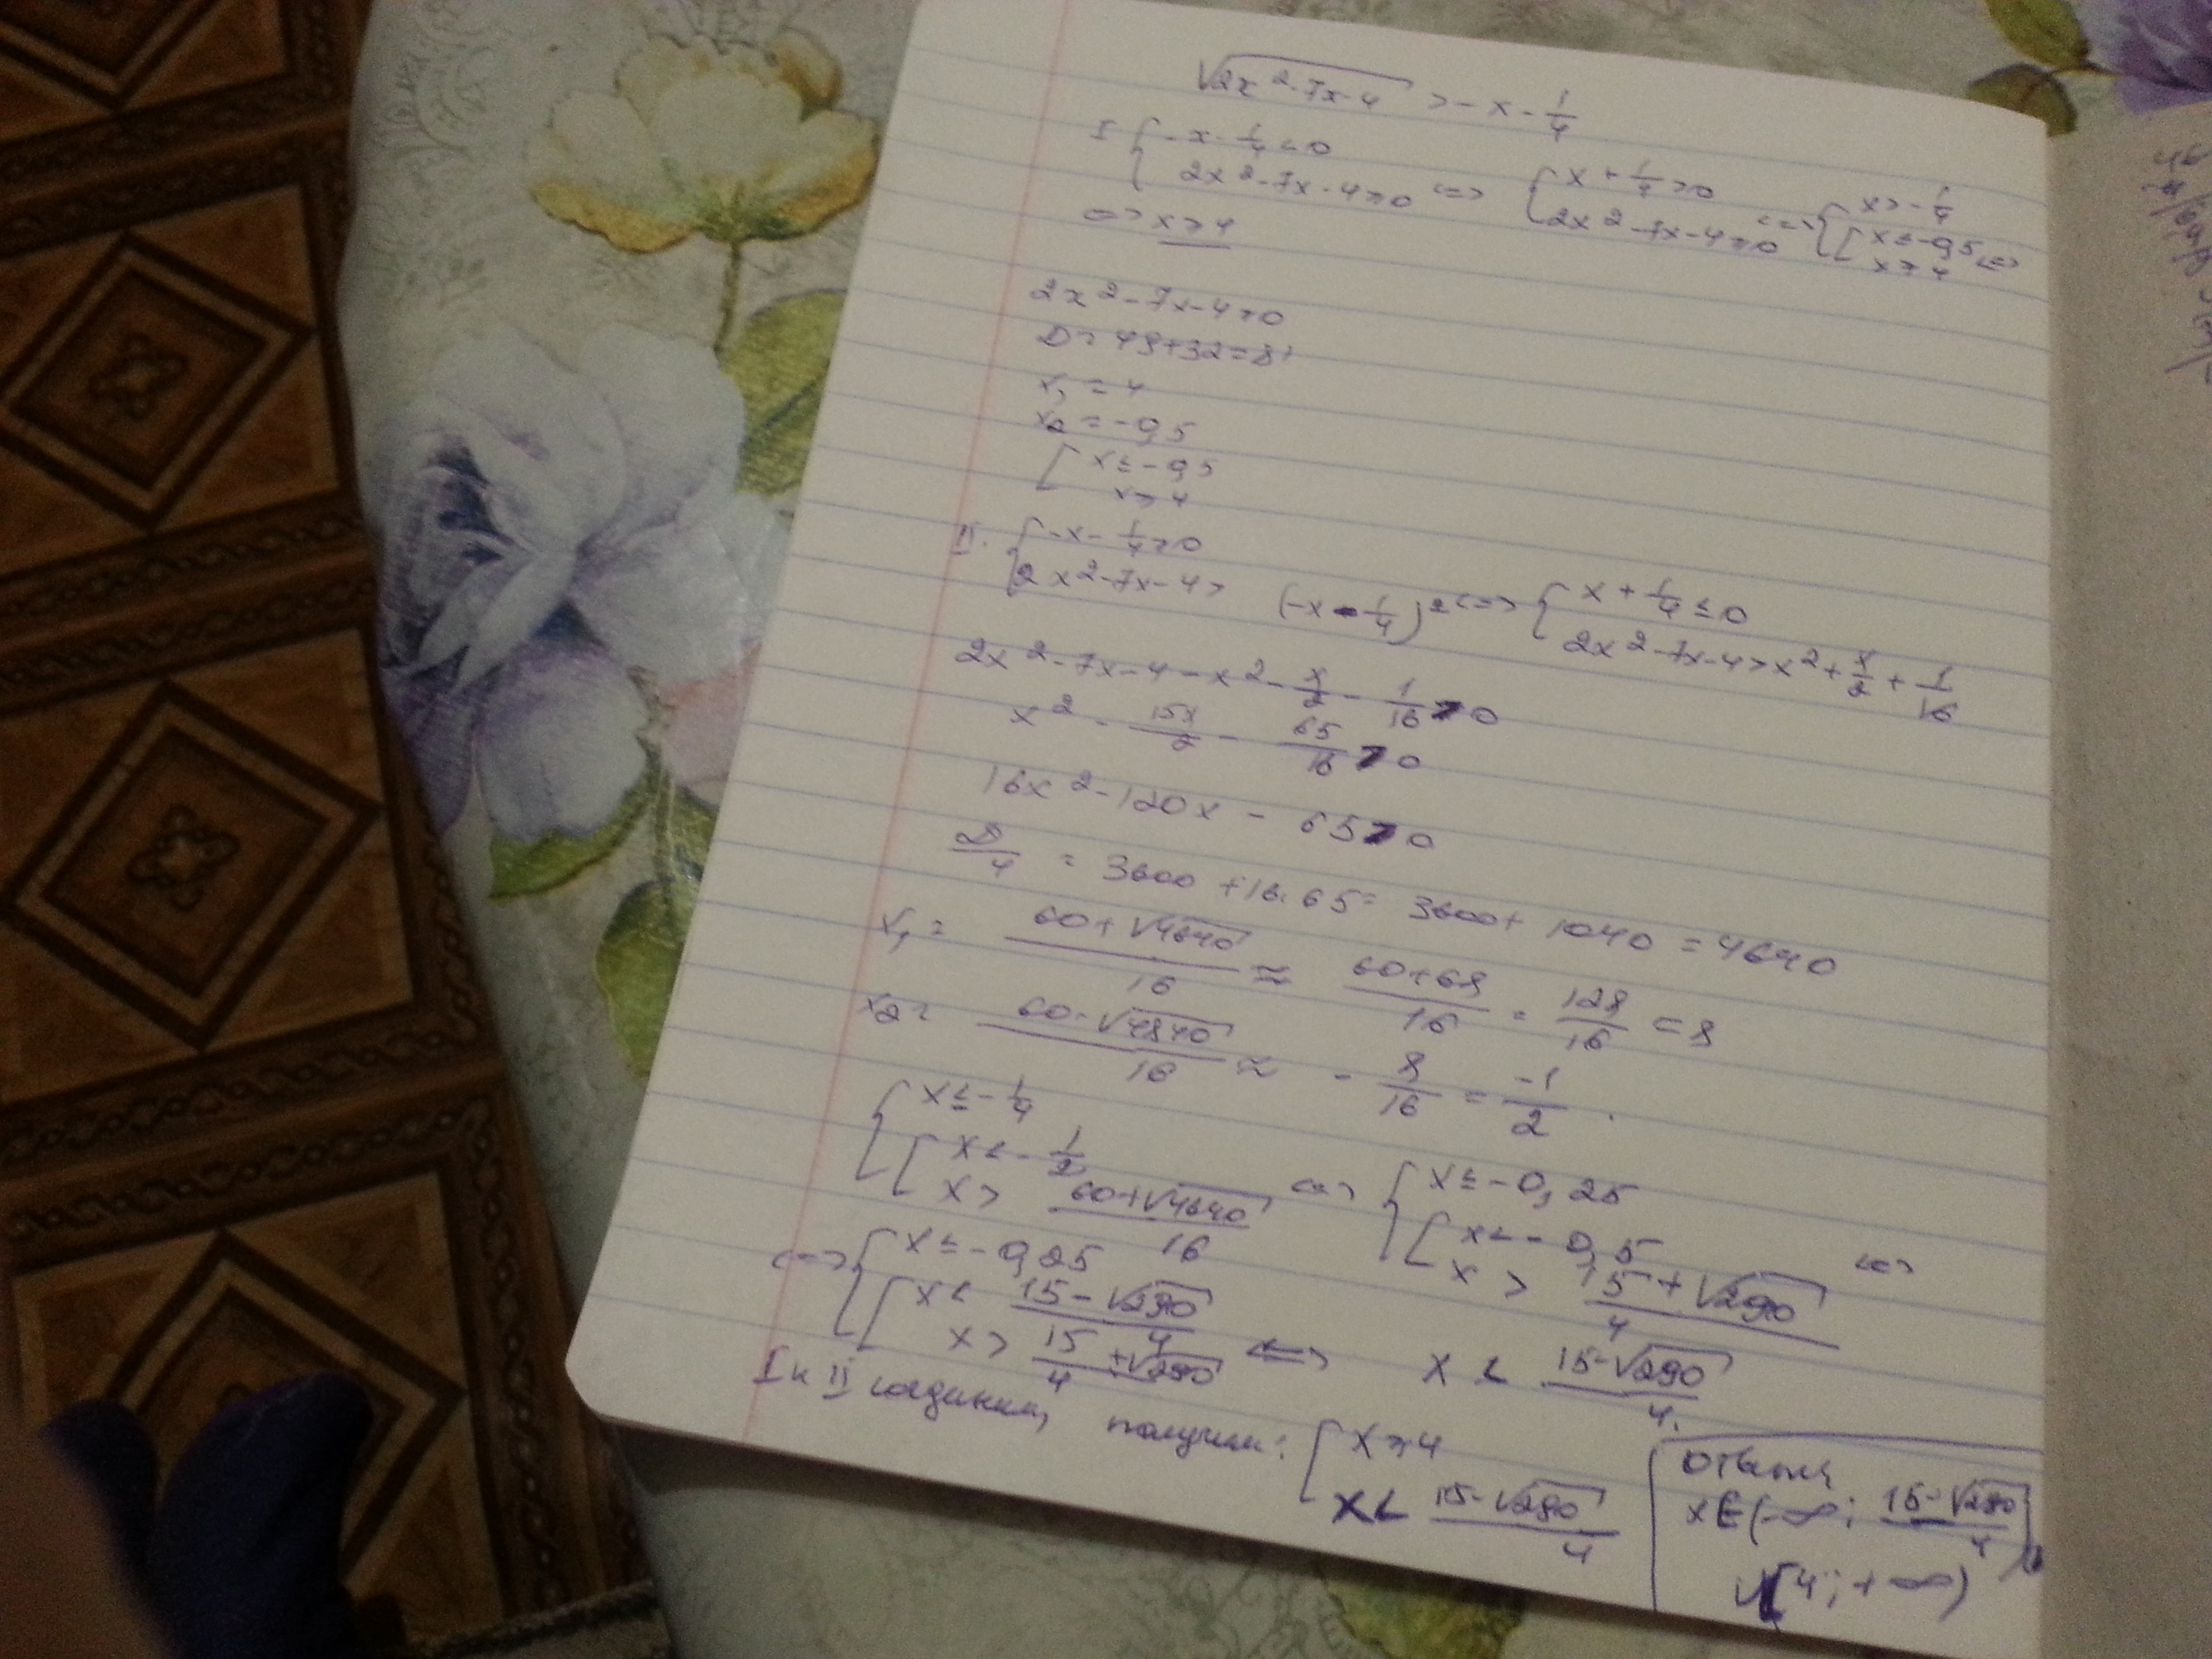 √(2x² - 7x - 4) > -x - 1/4
I { -x - 1/4 < 0
2x² - 7x - 4 ≥ 0 <=> { x + 1/4 > 0
2x² - 7x - 4 ≥ 0 <=> { x > -1/4
[ x ≤ -0,5
x ≥ 4 <=>
<=> x ≥ 4
2x² - 7x - 4 ≥ 0
D = 49 + 32 = 81
x₁ = 4
x₂ = -0,5
[ x ≤ -0,5
x ≥ 4
II. { -x - 1/4 ≥ 0
2x² - 7x - 4 > (-x - 1/4)² <=> { x + 1/4 ≤ 0
2x² - 7x - 4 > x² + x/2 + 1/16
2x² - 7x - 4 - x² - x/2 - 1/16 > 0
x² - 15x/2 - 65/16 > 0
16x² - 120x - 65 > 0
D/4 = 3600 + 16·65 = 3600 + 1040 = 4640
x₁ = (60 + √4640)/16 ≈ (60 + 68)/16 = 128/16 = 8
x₂ = (60 - √4840)/16 ≈ -8/16 = -1/2.
{ x ≤ -1/4
[ x < -1/2
x > (60 + √4640)/16 <=> { x ≤ -0,25
[ x < -0,5
x > (15 + √290)/4 <=>
<=> { x ≤ -0,25
[ x < (15 - √290)/4
x > (15 + √290)/4 <=> x < (15 - √290)/4.
I и II соединим, получим: [ x ≥ 4
x < (15 - √290)/4
Ответ:
x ∈ (-∞; (15 - √290)/4)
∪ [4; +∞)